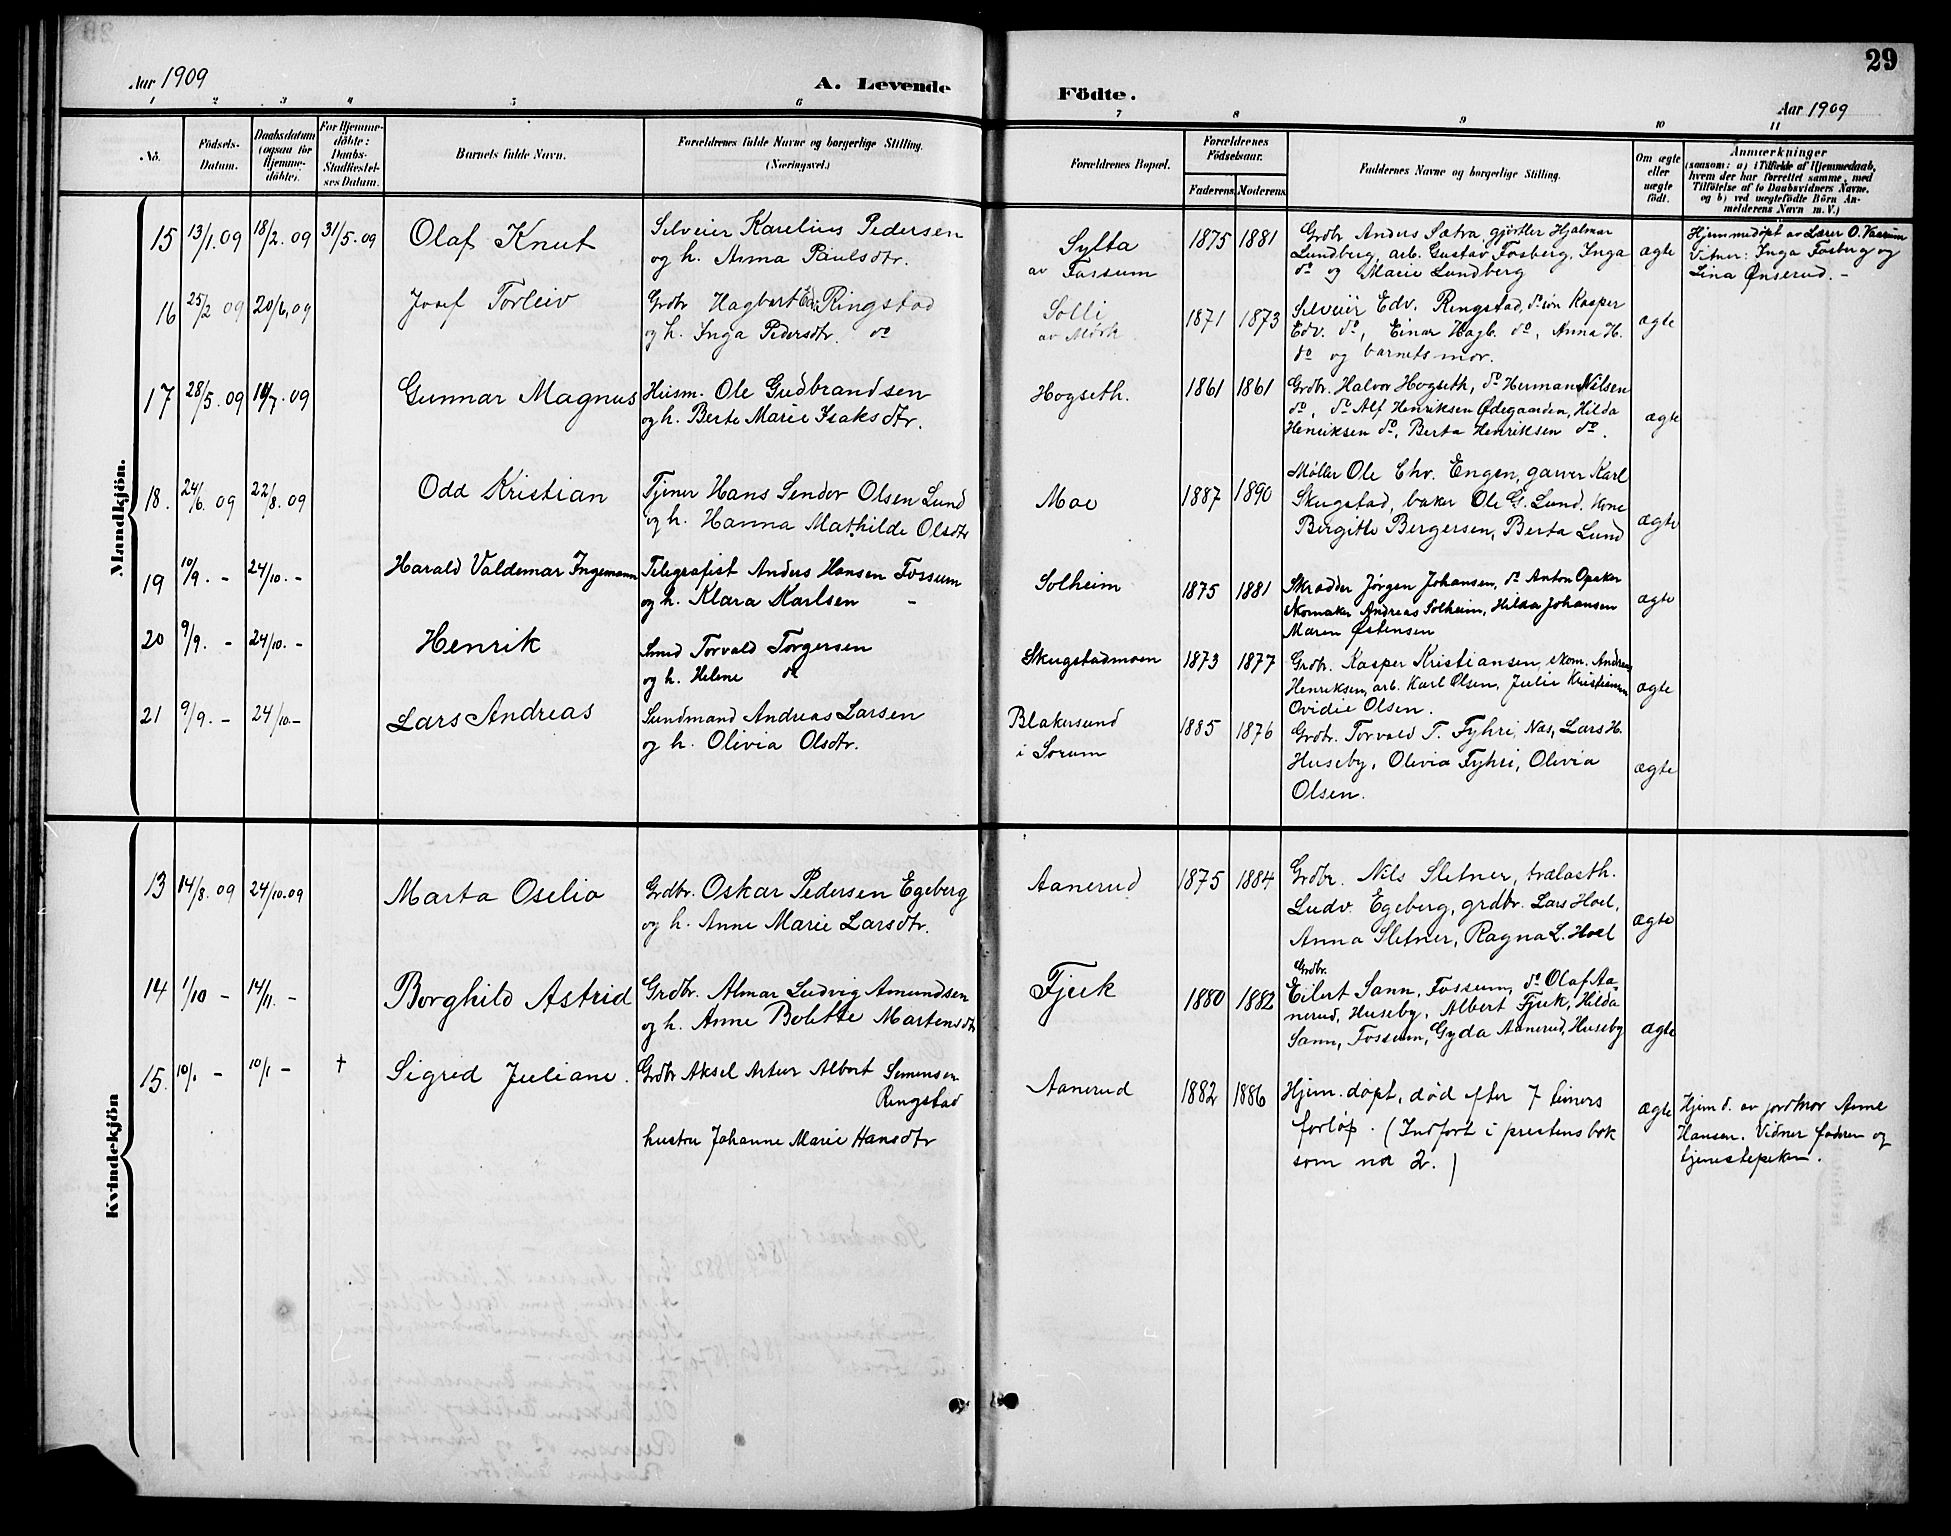 29
Aar 1909
A. Levende
Födte.
Aar 1909
1 2 3 4 5 6 7 8 9 10 11
No.
Födsels-
Datum.
Daabsdatum
(ogsaa for
Hjemme-
döbte).
For Hjemme-
döbte:
Daabs-
Stadfæstel-
ses Datum.
Barnets fulde Navn.
Forældrenes fulde Navne og borgerlige Stilling.
(Næringsvei.)
Forældrenes Bopæl.
Forældrenes
Födselsaar.
Faderens. Moderens.
Faddernes Navne og borgerlige Stilling.
Om ægte
eller
uægte
födt.
Anmærkninger
(saasom: a) i Tilfælde af Hjemmedaab,
hvem der har forrettet samme, med
Tilföielse af to Daabsvidners Navne.
og b) ved uægtefödte Börn An-
melderens Navn m. V.)
Mandkjön.
15 13/1.09 18/2.09 31/5.09 Olaf Knut
Selveier Karelius Pedersen
og h. Anna Paulsdtr.
Sylta
av Fossum
1875 1881
Grdbr Anders Sætra, gjørtler Hjalmar
Lundberg, arb. Gustav Fosberg, Inga
do og Marie Lundberg
ægte
Hjemmedøpt av Lærer O. Vaarum
Vitner: Inga Fosberg og
Lina Ønserud. -
16 25/2 09 20/6.09 Josef Torleiv
Grdbr Hagbart Edv. Ringstad
og h. Inga Pedersdtr. do
Solli
av Mørk
1871 1873
Selveier Edv. Ringstad, do søn Kasper
Edv. do, Einar Hagb. do, Anna H.
do og barnets mor.
ægte
17 28/5.09 /7.09 Gunnar Magnus
Husm. Ole Gudbrandsen
og h. Berte Marie Isaksdtr.
Hogseth.
1861 1861
Grdbr. Halvor Hogseth, do Herman Nilsen
do, do Alf Henriksen Ødegaarden, Hilda
Henriksen do, Berta Henriksen do.
ægte
18. 24/6.09 22/8.09 Odd Kristian
Tjener Hans Sendor Olsen Lund
og h. Hanna Mathilde Olsdtr
Moe
1887 1890
Møller Ole Chr. Engen, garver Karl
Skugstad, baker Ole G. Lund. Kone
Birgitte Bergersen, Berta Lund
ægte
19 10/9. - 24/10. - Harald Valdemar Ingemann
Telegrafist Anders Hansen Fossum
og h. Klara Karlsen -
Solheim
1875 1881
Skrædder Jørgen Johansen, do Anton Opaker
skomaker Andreas Solheim, Hilda Johansen
Maren Østensen
ægte
20 9/9. - 24/10. - Henrik
Smed Torvald Torgersen
og h. Helene do
Skugstadmoen
1873 1877
Grdbr. Kasper Kristiansen, skom. Andreas
Henriksen, arb. Karl Olsen, Julie Kristiansen
Ovidie Olsen.
ægte
21 9/9. - 24/10. - Lars Andreas
Sundmand Andreas Larsen
og h. Olivia Olsdtr.
Blakersund
i Sørum
1885 1876
Grdbr. Torvald T. Fyhri, Næs, Lars H.
Huseby, Olivia Fyhri, Olivia
Olsen.
ægte
Kvindekjön
13 14/8.09 24/10.09 Marta Oselia
Grdbr. Oskar Pedersen Egeberg
og h. Anne Marie Larsdtr.
Aanerud
1875 1884
Grdbr. Nils Sletner, trælasth.
Ludv. Egeberg, grdbr. Lars Hoel,
Anna Sletner, Ragna L. Hoel
ægte
14 1/10 - 14/11. - Borghild Astrid
Grdbr. Almar Ludvig Amundsen
og h. Anne Bolette Martensdtr
Fjeik
1880 1882
Grdbr.
Eilert Sann, Fossum, do Olaf Aa-
nerud, Huseby, Albert Fjeik, Hilda
Sann, Fossum, Gyda Aanerud, Huseby
ægte
15. 10/1 - 10/1 - † Sigrid Juliane.
Grdbr Aksel Artur Albert Simensen
Ringstad
hustru Johanne Marie Hansdtr
Aanerud
1882 1886
Hjem. døpt, død efter 7 timers
forløp. (Indført i prestens bok
som no 2.)
ægte
Hjemd. av jordmor Anne
Hansen. Vidner faderen og
tjenestepiken.